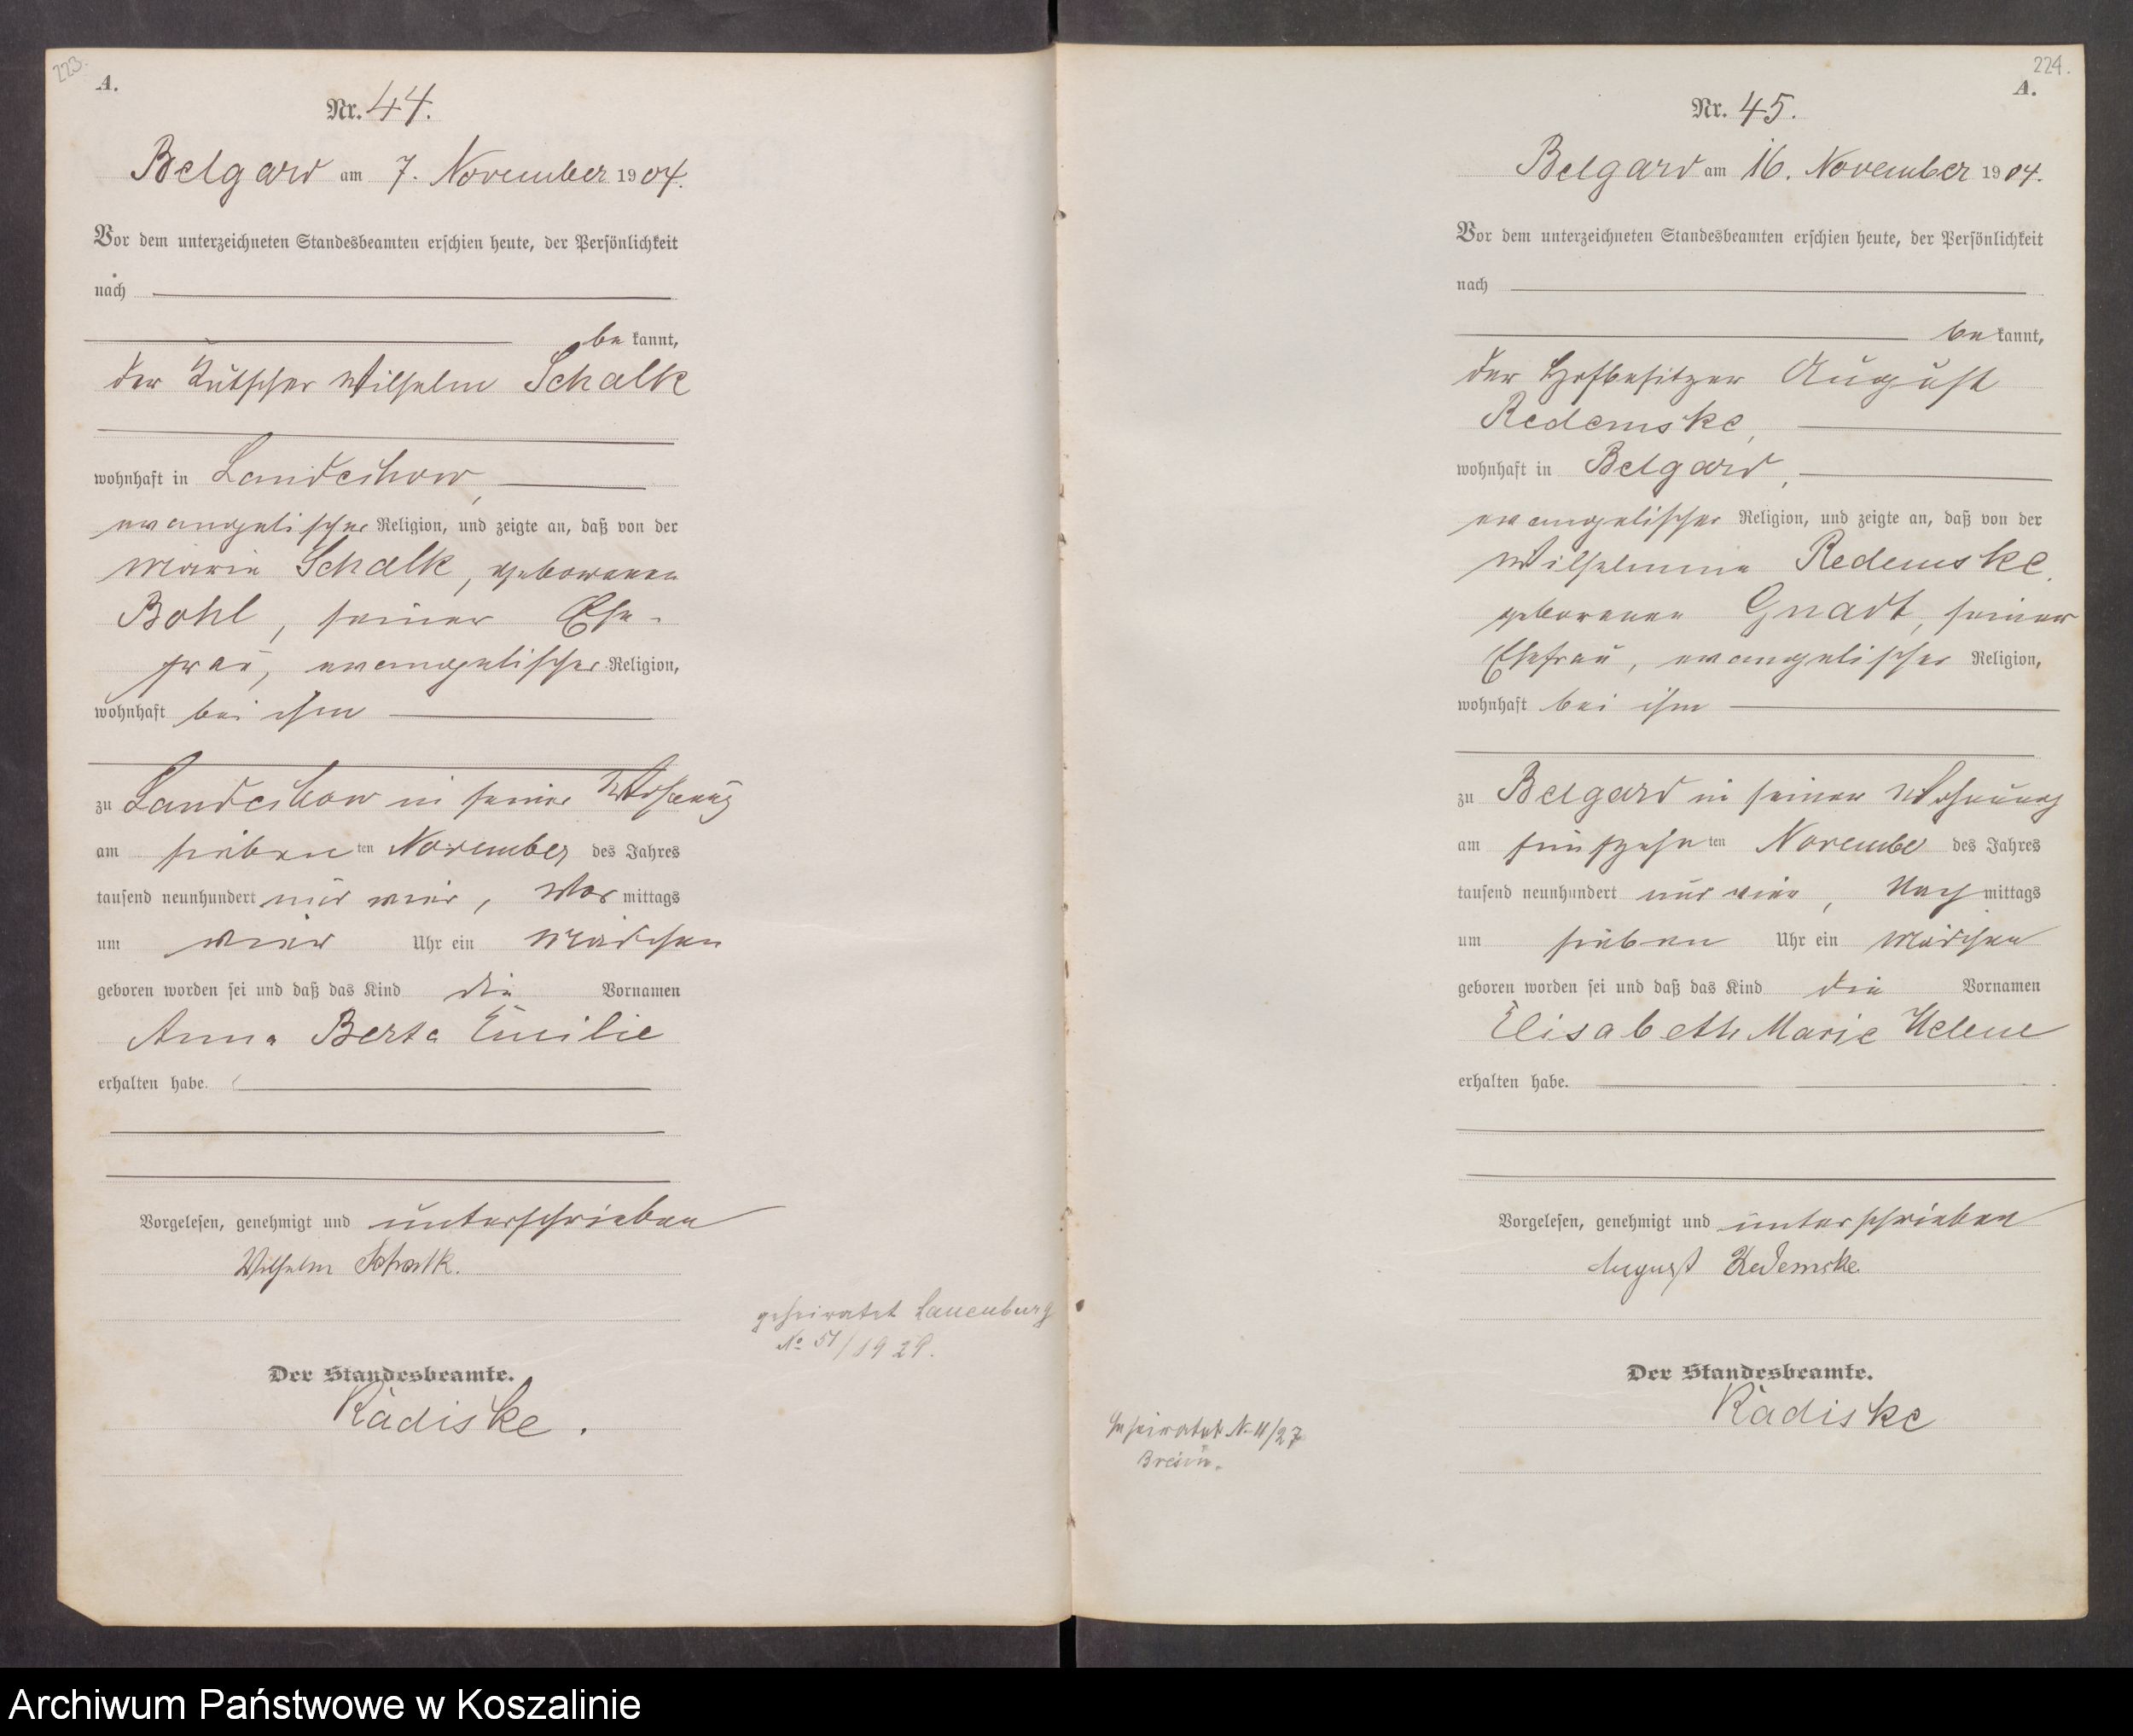 223.
A.
Nr. 44.
Belgard am 7. November 1904.
Vor dem unterzeichneten Standesbeamten erschien heute, der Persönlichkeit
nach
be kannt,
der Kutscher Wilhelm Schalk
wohnhaft in Landechow,
evangelischer Religion, und zeigte an, daß von der
Marie Schalk, geborenen
Bohl, seiner Ehe-
frau, evangelischer Religion,
wohnhaft bei ihm
zu Landechow in seiner Wohnung
am sieben ten November des Jahres
tausend neunhundert und vier, Vor mittags
um vier Uhr ein Mädchen
geboren worden sei und daß das Kind die Vornamen
Anna Berta Emilie
erhalten habe.
Vorgelesen, genehmigt und unterschrieben
Wilhelm Schalk.
geheiratet Lauenburg
No 51/1929.
Der Standesbeamte.
Radiske.
224.
A.
Nr. 45.
Belgard am 16. November 1904.
Vor dem unterzeichneten Standesbeamten erschien heute, der Persönlichkeit
nach
be kannt,
der Hofbesitzer August
Redemske,
wohnhaft in Belgard,
evangelischer Religion, und zeigte an, daß von der
Wilhelmine Redemske,
geborenen Gnadt, seiner
Ehefrau, evangelischer Religion,
wohnhaft bei ihm
zu Belgard in seiner Wohnung
am fünfzehn ten November des Jahres
tausend neunhundert und vier, Nach mittags
um sieben Uhr ein Mädchen
geboren worden sei und daß das Kind die Vornamen
Elisabeth Marie Helene
erhalten habe.
Vorgelesen, genehmigt und unterschrieben
August Redemske
Der Standesbeamte.
Radiske
Geheiratet N. 11/27
Archiwum Państwowe w Koszalinie